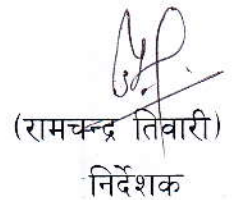 (रामचन्द्र तिवारी)
निर्देशक